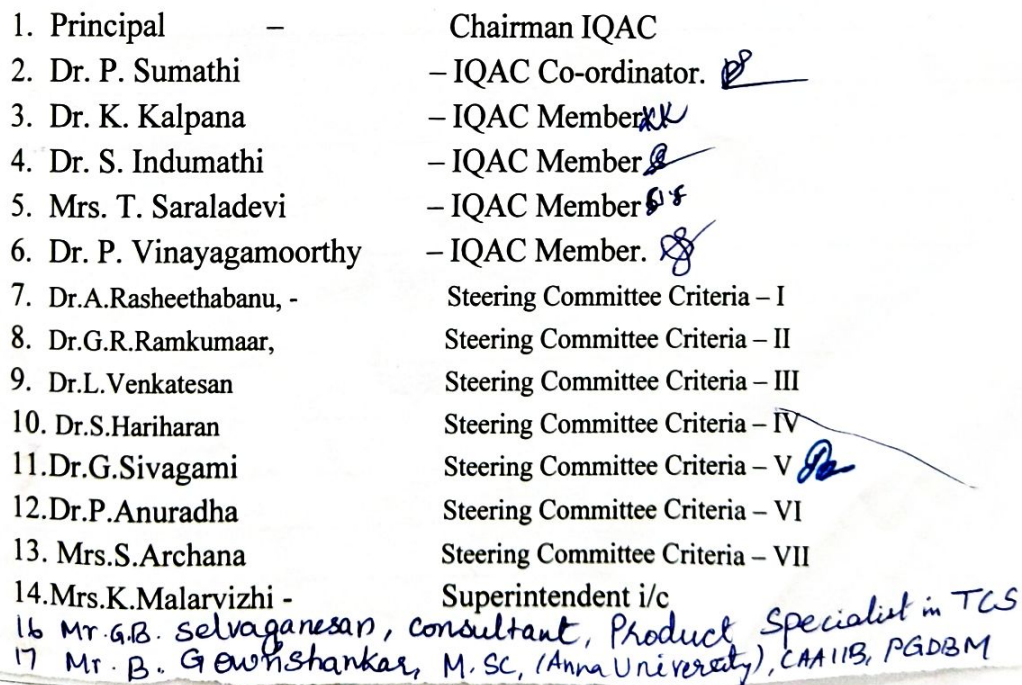 1. Principal – Chairman IQAC
2. Dr. P. Sumathi – IQAC Co-ordinator.
3. Dr. K. Kalpana – IQAC Member
4. Dr. S. Indumathi – IQAC Member
5. Mrs. T. Saraladevi – IQAC Member
6. Dr. P. Vinayagamoorthy – IQAC Member.
7. Dr.A.Rasheethabanu, - Steering Committee Criteria – I
8. Dr.G.R.Ramkumaar, Steering Committee Criteria – II
9. Dr.L.Venkatesan Steering Committee Criteria – III
10. Dr.S.Hariharan Steering Committee Criteria – IV
11.Dr.G.Sivagami Steering Committee Criteria – V
12.Dr.P.Anuradha Steering Committee Criteria – VI
13. Mrs.S.Archana Steering Committee Criteria – VII
14.Mrs.K.Malarvizhi - Superintendent i/c
16 Mr.G.B. Selvaganesan, Consultant, Product Specialist in TCS
17 Mr. B. Gowrishankar, M.SC, (Anna University), CAAIIB, PGDBM